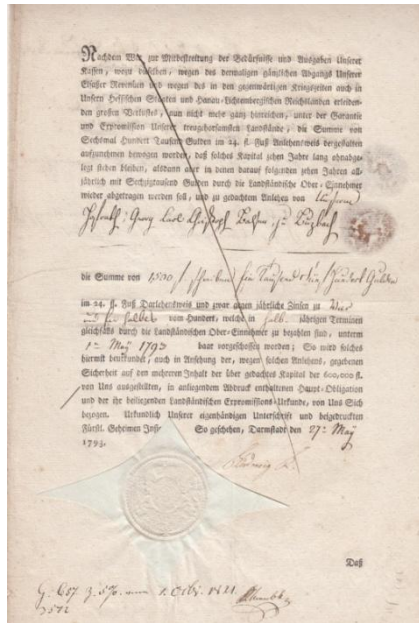 Nachdem Wir zur Mitbestreitung der Bedürfnisse und Ausgaben Unserer
Kassen, wozu dieselben, wegen des dermaligen gänzlichen Abgangs Unserer
Elsasser Revenüen und wegen des in den gegenwärtigen Kriegszeiten auch in
Unsern Hessischen Staaten und Hanau-Lichtenbergischen Reichslanden erleiden-
den großen Verlustes, nun nicht mehr ganz hinreichen, unter der Garantie
und Expromission Unserer treugehorsamsten Landstände, die Summe von
Sechsmal Hundert Tausend Gulden im 24. fl. Fuß Anlehensweis dergestalten
aufzunehmen bewogen worden, daß solches Kapital zehen Jahre lang ohnabge-
legt stehen bleiben, alsdann aber in denen darauf folgenden zehen Jahren all-
jährlich mit Sechzigtausend Gulden durch die Landständische Ober-Einnehmer
wieder abgetragen werden soll, und zu gedachtem Anlehen von
Hofrath Georg Carl zu Buzbach
die Summe von Tausend Hundert Gulden
im 24. fl. Fuß Darlehensweis und zwar gegen jährliche Zinsen zu Vier
und ein halbes vom Hundert, welche in halb jährigen Terminen
gleichfalls durch die Landständischen Ober-Einnehmer zu bezahlen sind, unterm
1ten May 1793 baar vorgeschossen worden; So wird solches
hiermit beurkundet, auch in Ansehung der, wegen solchen Anlehens, gegebenen
Sicherheit auf den mehreren Inhalt der über gedachtes Kapital der 600,000 fl.
von Uns ausgestellten, in anliegendem Abdruck enthaltenen Haupt-Obligation
und der ihr beiliegenden Landständischen Expromissions-Urkunde, von Uns Sich
bezogen. Urkundlich Unserer eigenhändigen Unterschrift und beigedruckten
Fürstl. Geheimen Insie So geschehen, Darmstadt den 27ten May
1793.
Ludwig
Daß